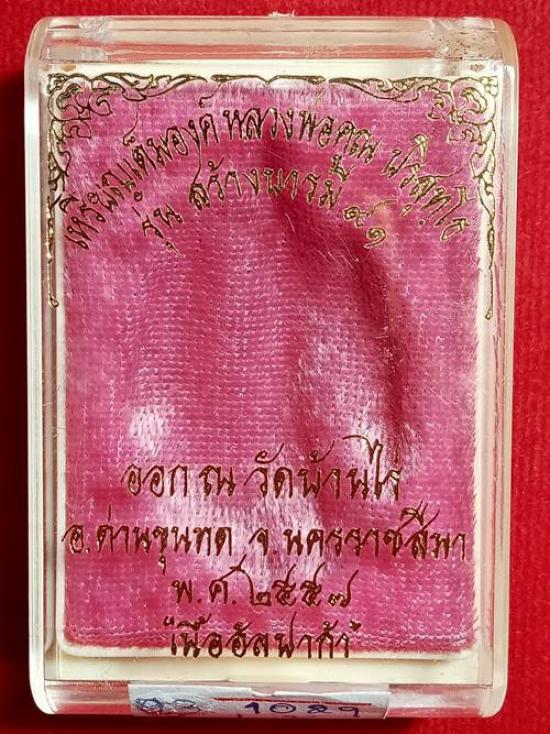 เหรียญเต็มองค์ หลวงพ่อคูณ ปริสุทฺโธ
รุ่น สร้างบารมี ๙๑
ออก ณ วัดบ้านไร่
อ.ด่านขุนทด จ.นครราชสีมา
พ.ศ. ๒๕๕๗
"เนื้ออัลปาก้า"
1029